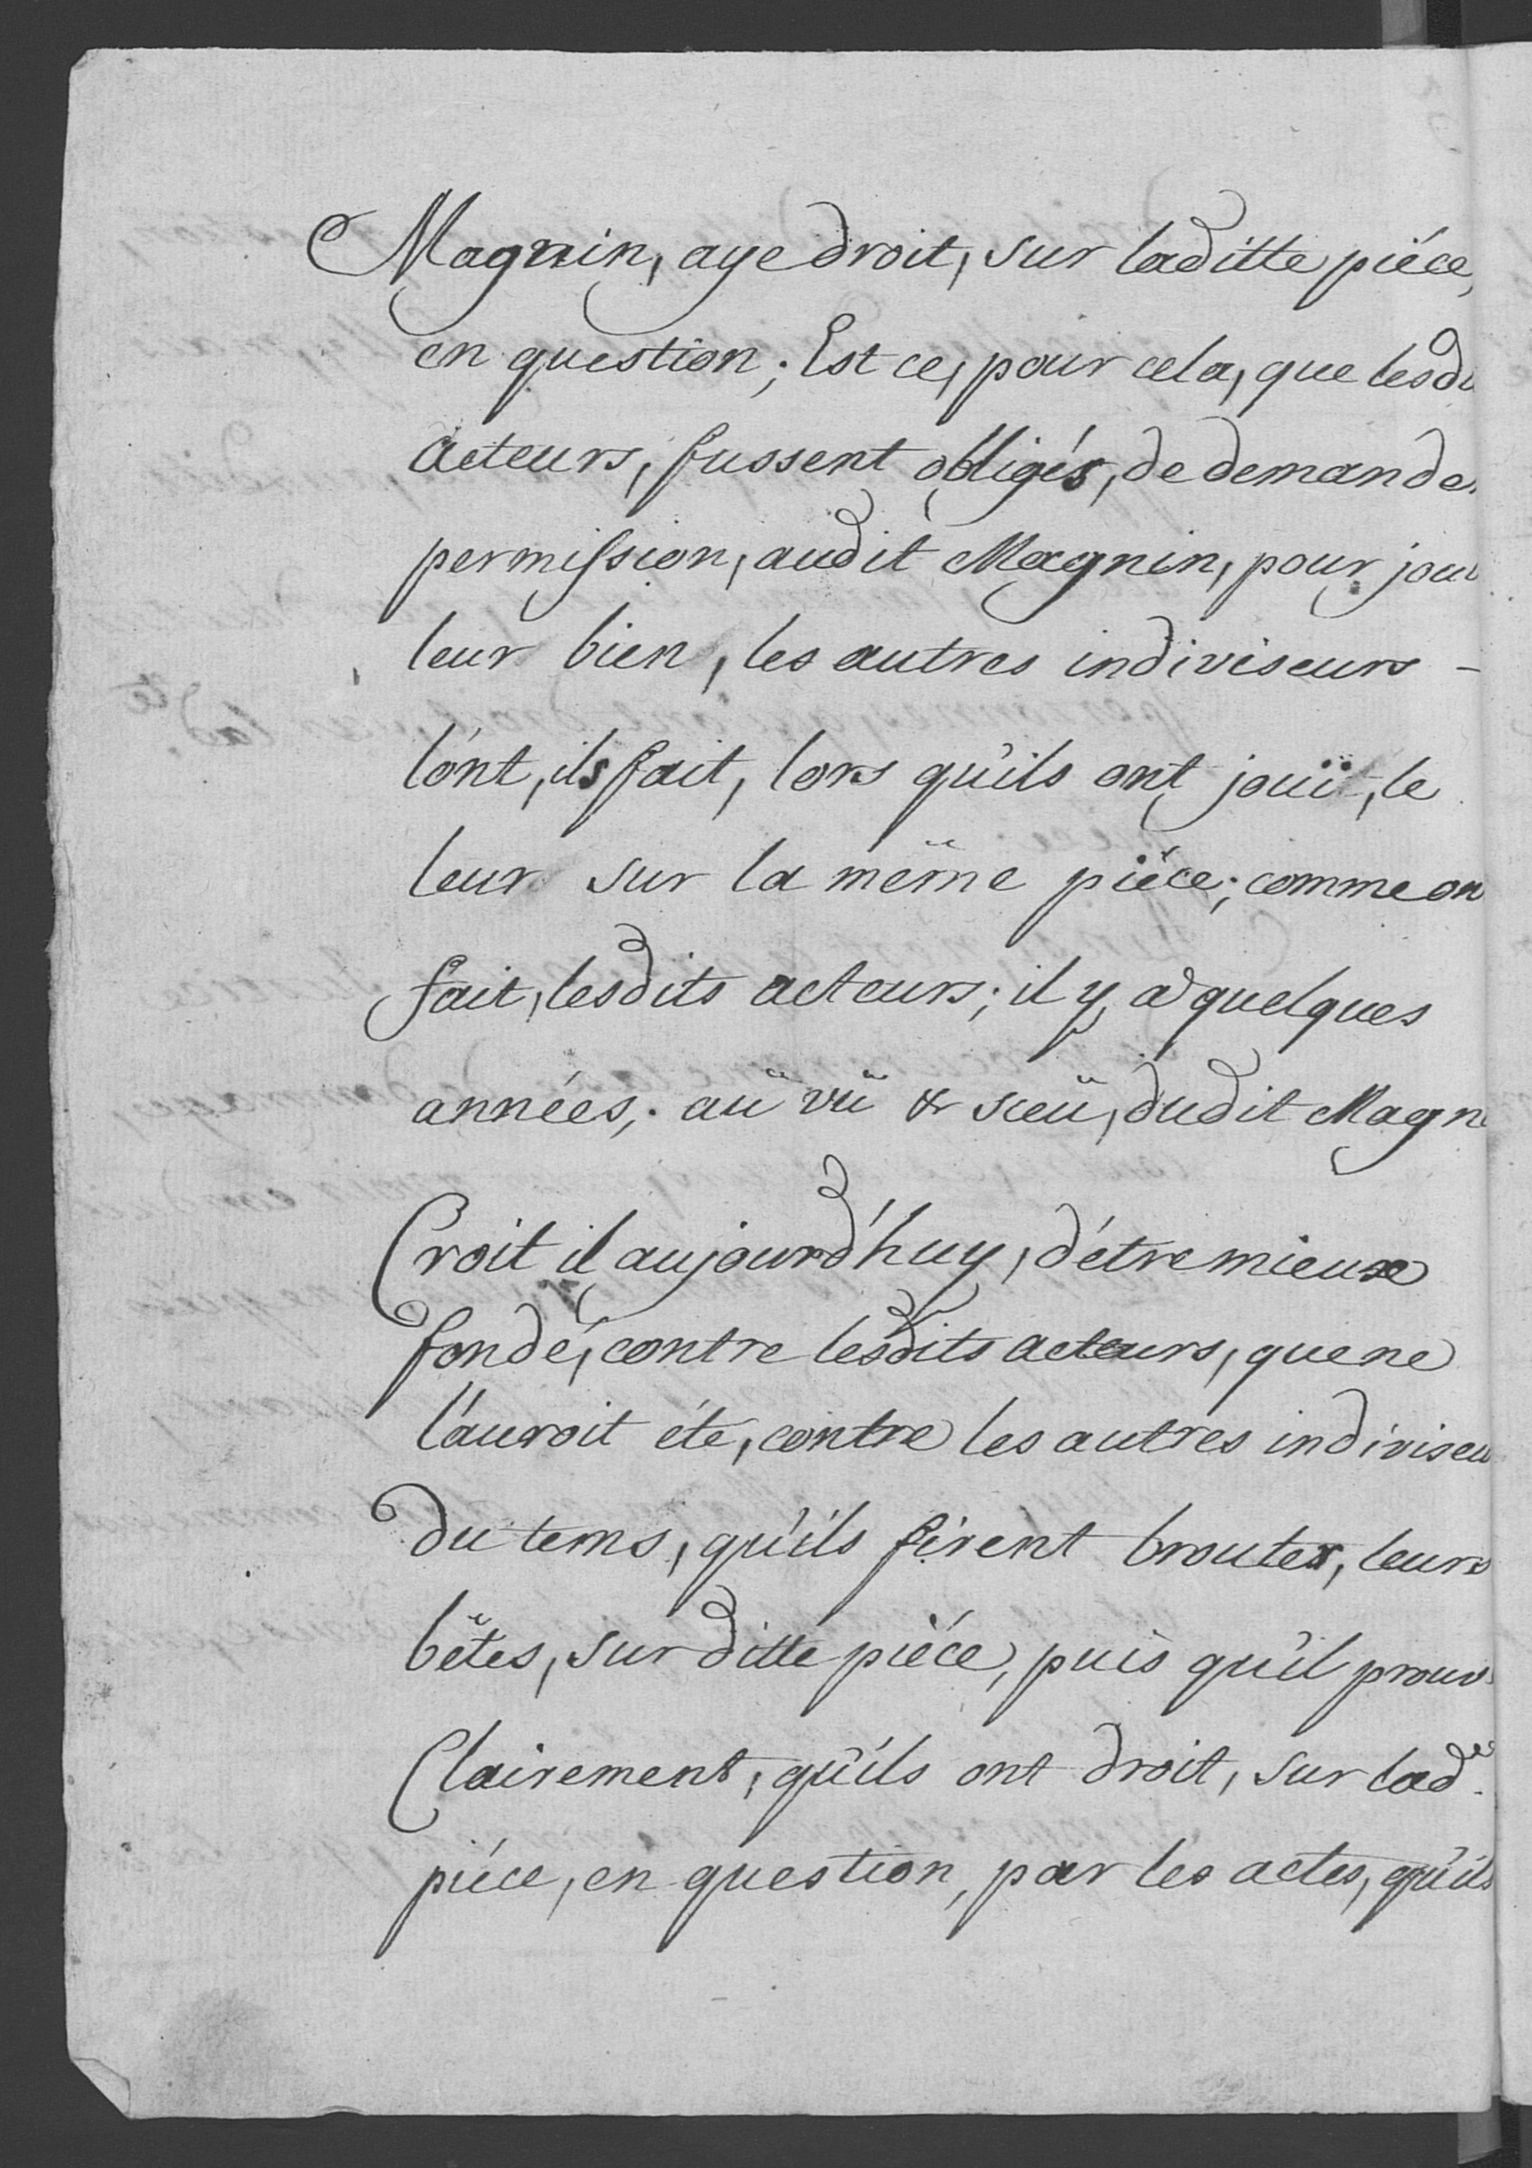 Magnin, aye droit, sur laditte piéce,
en question; Est ce, pour cela, que lesdi
acteurs, fussent obligés, de demande
permission, audit Magnin, pour joui
leur bien, les autres indiviseurs -
lónt, ils fait, lors qu'ils ont jouï, le
leur sur la même piéce; comme on
fait, lesdits acteurs; il y, a quelques
années; au vû & sceû, dudit Magn
Croit il aujourd'huy, d'étre mieux
fondé, contre lesdits acteurs, que ne
l'auroit éte, contre les autres indiviseu
Du tems, qu'ils firent brouter, leurs
bêtes, sur ditte piéce, puis qu'il prouv
Clairement, qu'ils ont droit, sur lad.
piéce, en question, par les actes, qu'ils